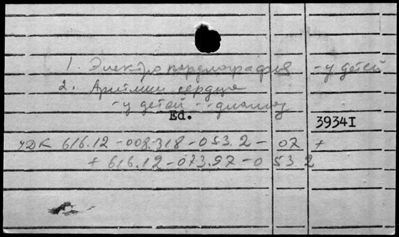 1. Электрокардиография - у детей
2. Аритмии сердца
- у детей - диагноз
Ed.
39341
УДК 616.12-008.318-053.2-07 +
+ 616.12-073.97-053.2